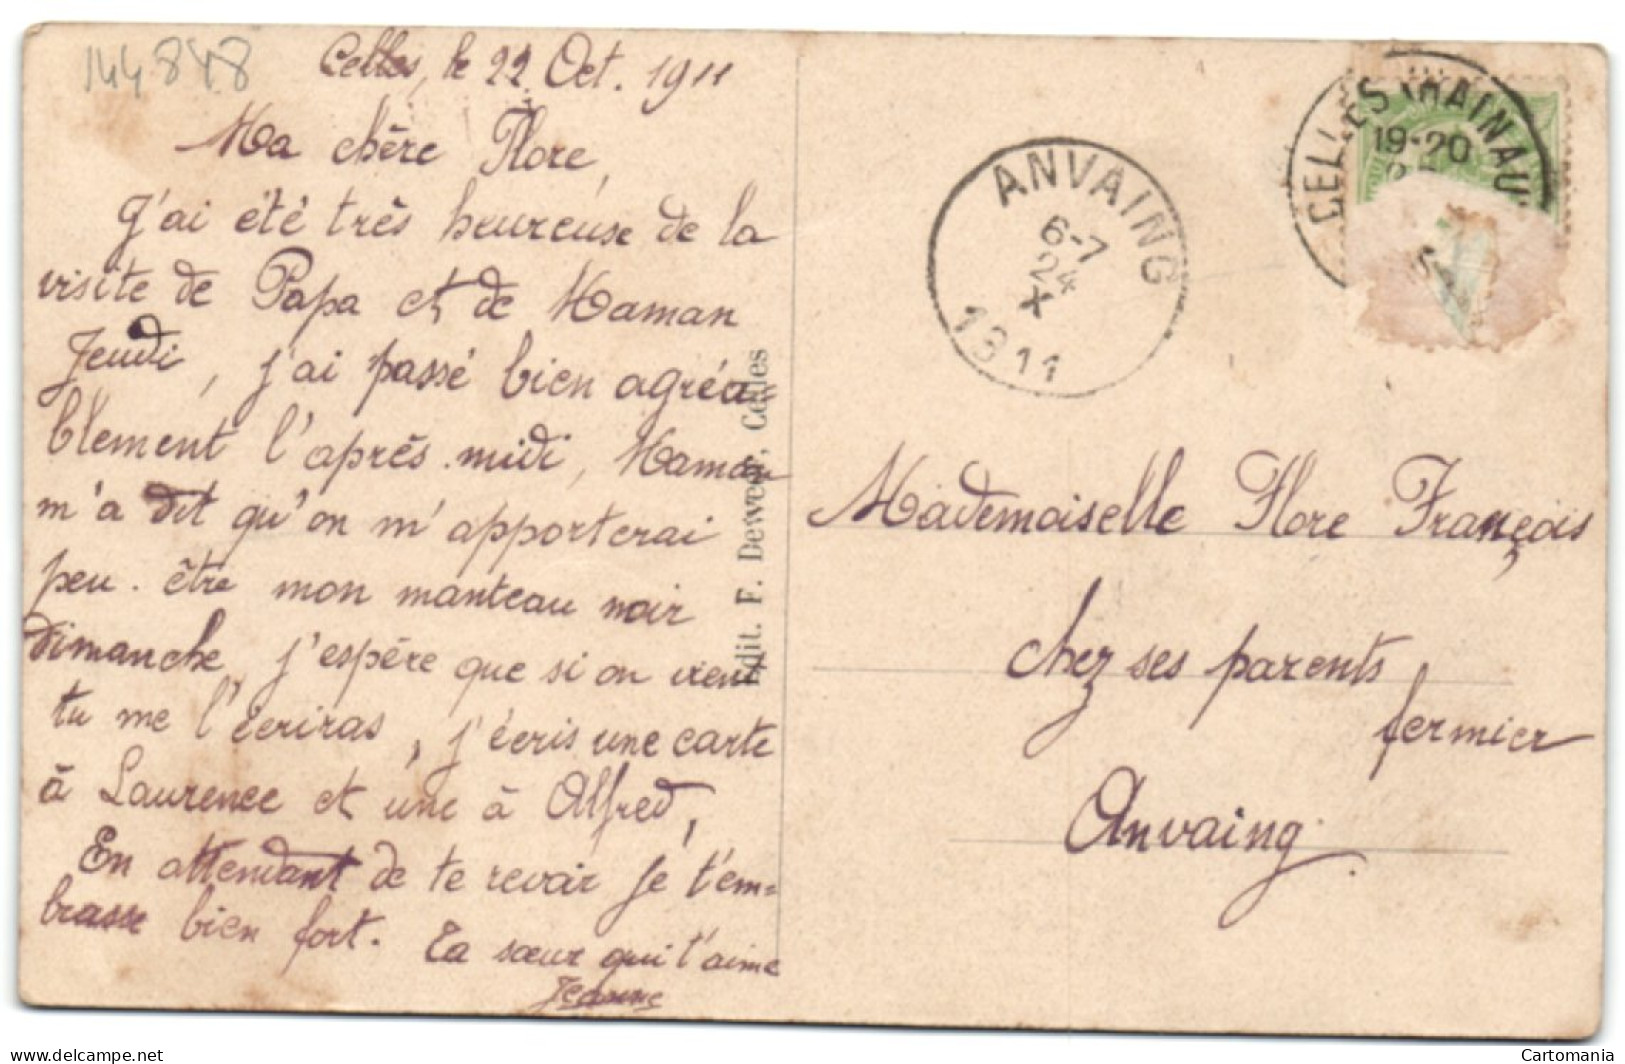 144848
Celles, le 22 Oct. 1911
Ma chère Flore,
J'ai été très heureuse de la
visite de Papa et de Maman
Jeudi, j'ai passé bien agréa=
blement l'après-midi, Maman
m'a dit qu'on m'apporterai
peu-être mon manteau noir
Dimanche, j'espère que si on vient
tu me l'écriras, j'écris une carte
à Laurence et une à Alfred,
En attendant de te revoir je t'em=
brasse bien fort. Ta sœur qui t'aime
Jeanne
Edit. F. Deweer, Celles
ANVAING
6-7
24
X
1911
CELLES (HAINAUT
19-20
Mademoiselle Flore François
chez ses parents
fermier
Anvaing
www.delcampe.net
Cartomania